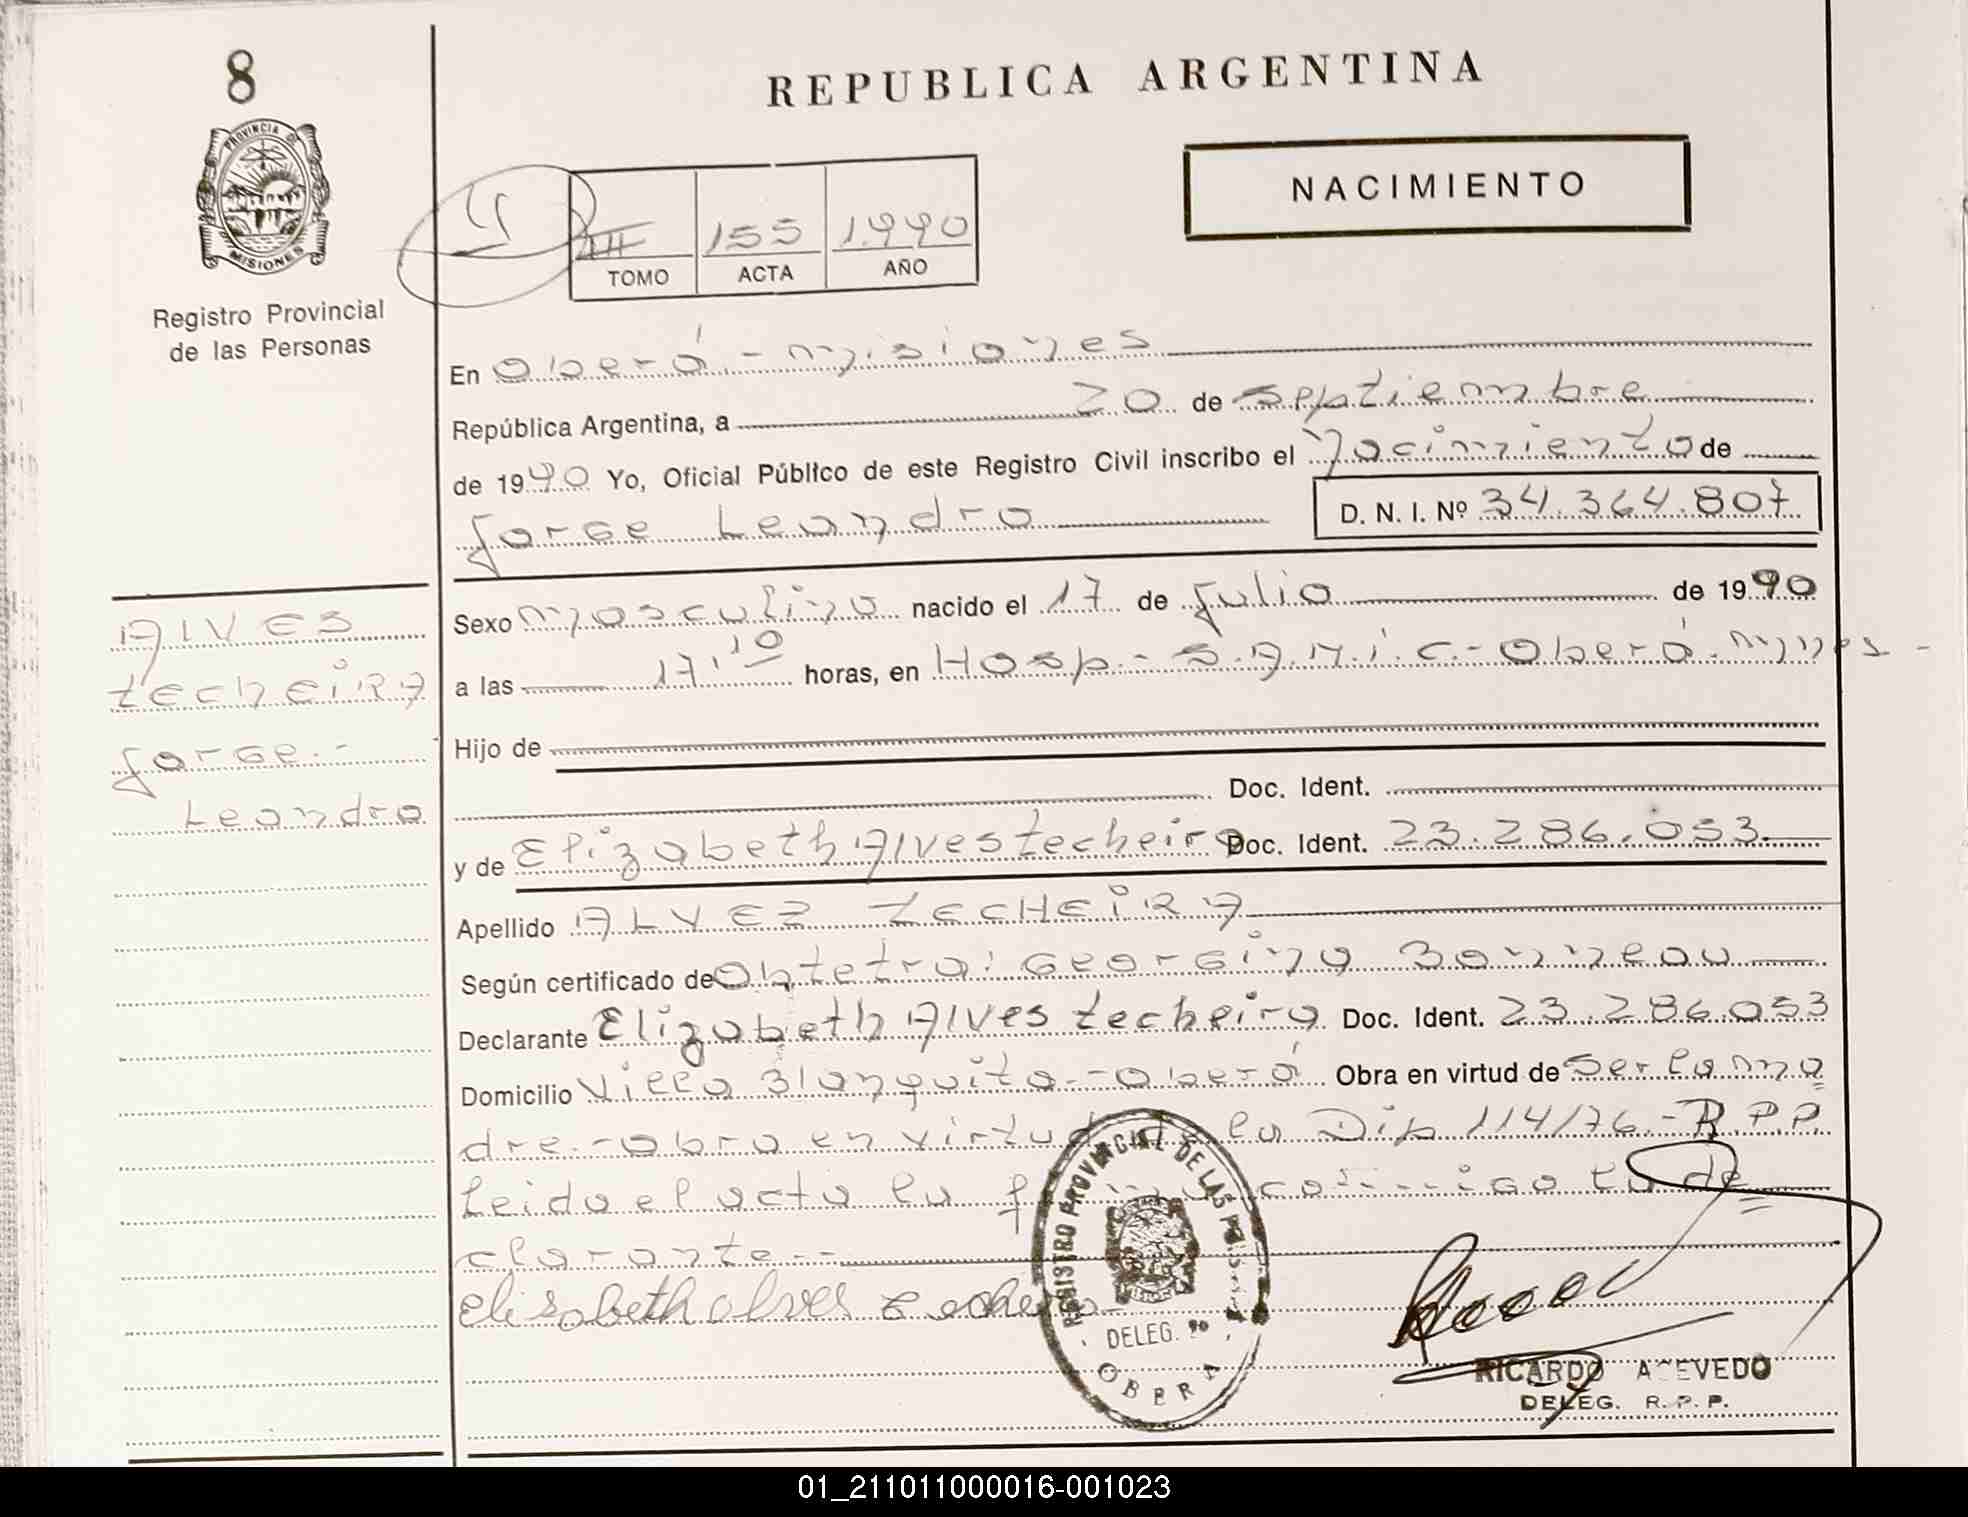 8
REPUBLICA ARGENTINA
PROVINCIA DE MISIONES
NACIMIENTO
V
III 155 1.990
TOMO ACTA AÑO
Registro Provincial
de las Personas
En Oberá - Misiones
República Argentina, a 20 de Septiembre
de 1990 Yo, Oficial Público de este Registro Civil inscribo el Nacimiento de
Jorge Leandro D. N. I. Nº 34.364.807
ALVES
TECHEIRA
Jorge.-
Leandro
Sexo Masculino nacido el 17 de Julio de 1990
a las 17,10 horas, en Hosp- S.A.M.i.C.- Oberá. Mnes-
Hijo de
Doc. Ident.
y de Elizabeth Alves techeira Doc. Ident. 23.286.053.
Apellido ALVEZ TECHEiRA
Según certificado de Obtetra: Georgina Bonneau
Declarante Elizabeth Alves techeira Doc. Ident. 23.286.053
Domicilio Villa Blanquita.- Oberá Obra en virtud de Ser la ma
dre.- obra en virtud de la Dip 114/76.- R.P.P.
Leida el acta la firma conmigo la de
clarante.-
elisabeth alves techeira
REGISTRO PROVINCIAL DE LAS PERSONAS
DELEG.
OBERA
RICARDO ACEVEDO
DELEG. R. P. P.
01_211011000016-001023